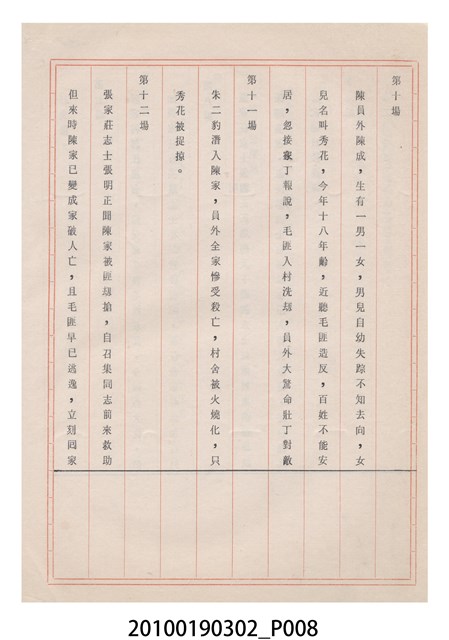 第十場
陳員外陳成，生有一男一女，男兒自幼失踪不知去向，女
兒名叫秀花，今年十八年齡，近聽毛匪造反，百姓不能安
居，忽接家丁報說，毛匪入村洗刧，員外大驚命壯丁對敵
第十一場
朱二豹潛入陳家，員外全家慘受殺亡，村舍被火燒化，只
秀花被提掠。
第十二場
張家莊志士張明正聞陳家被匪刧搶，自召集同志前來救助
但来時陳家已變成家破人亡，且毛匪早已逃逸，立刻囘家
20100190302_P008